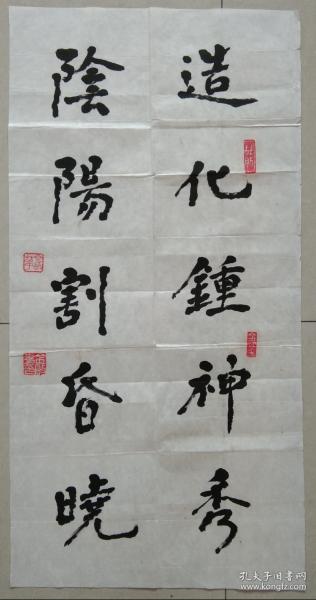 造化鍾神秀
陰陽割昏曉
孔夫子旧书网